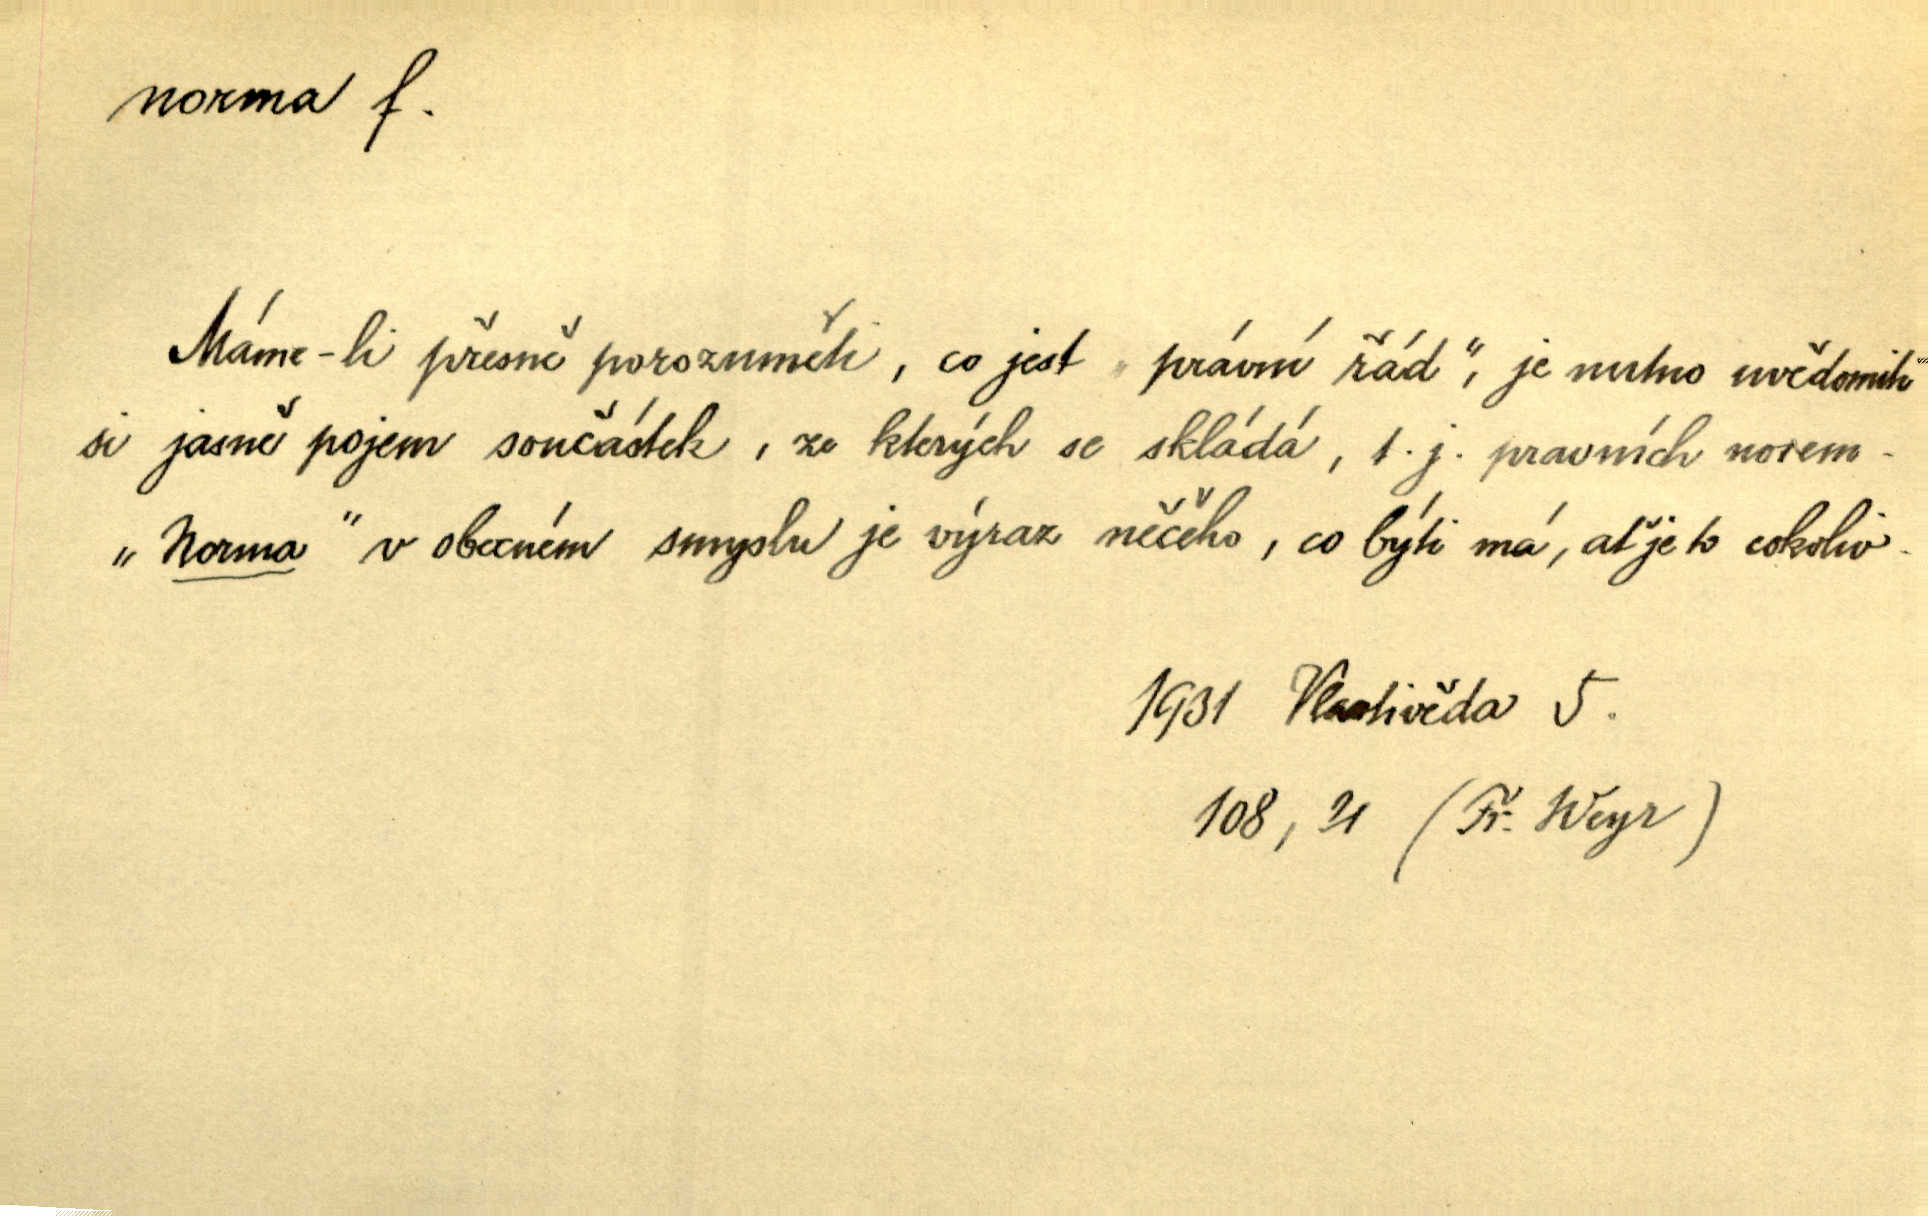 norma f.
Máme-li přesně porozuměti, co jest „právní řád“, je nutno uvědomiti
si jasně pojem součástek, ze kterých se skládá, t. j. pravních norem.
„Norma“ v obecném smyslu je výraz něčeho, co býti má, ať je to cokoliv.
1931 Vlastivěda 5.
108, 21 (Fr. Weyr)